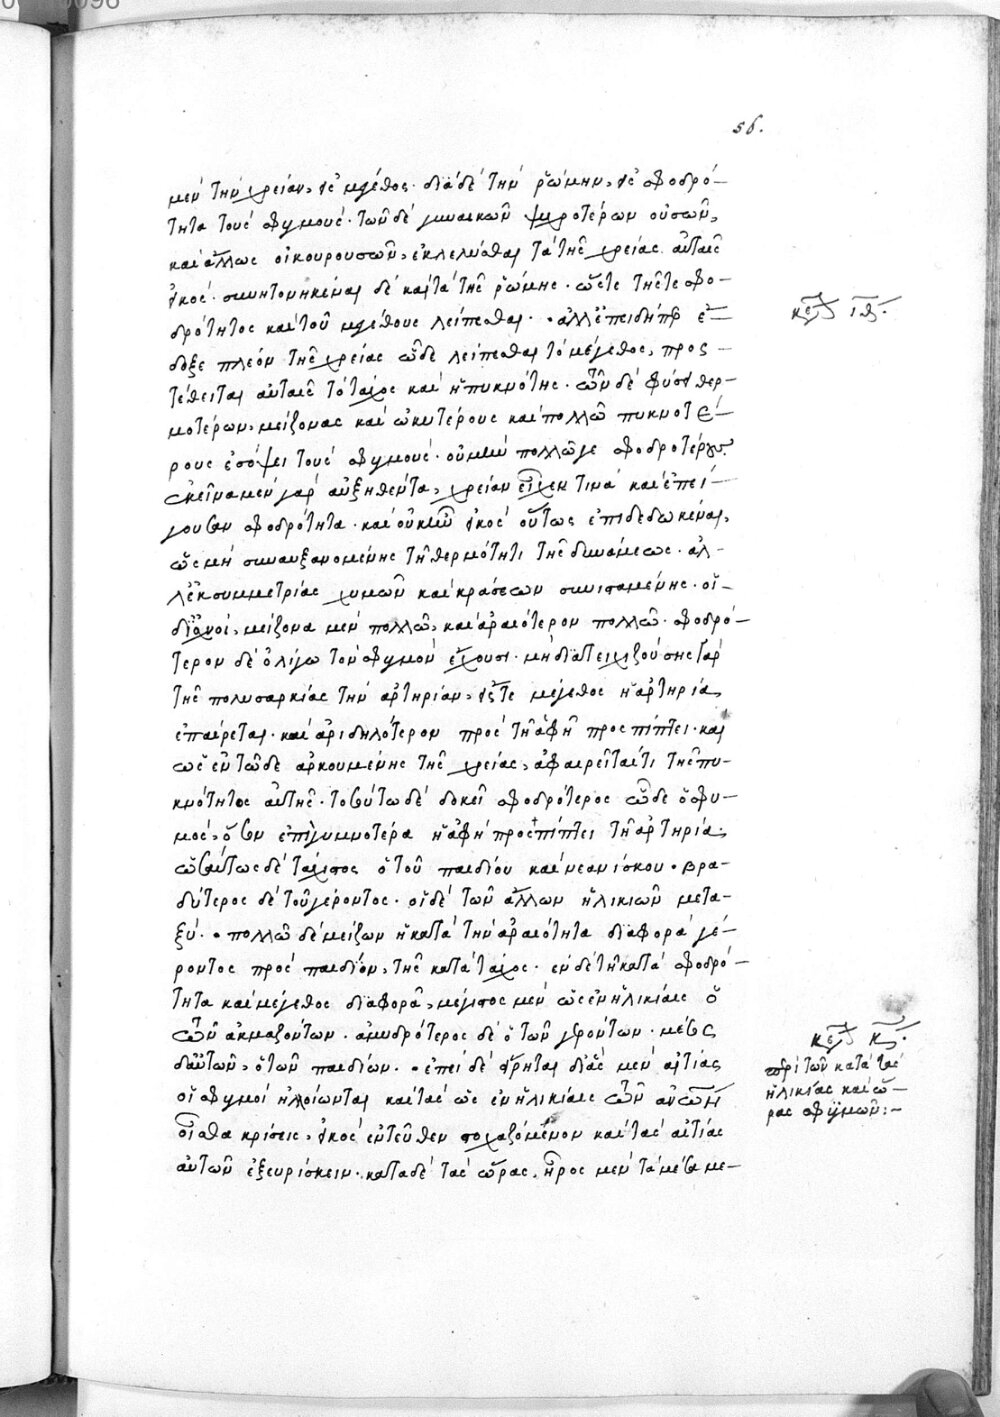 56.
μὲν τὴν χρείαν, εἰς μέγεθος· διὰ δὲ τὴν ῥώμην, εἰς σφοδρό-
τητα τοὺς σφυγμούς· τῶν δὲ γυναικῶν ψυχροτέρων οὐσῶν,
καὶ ἄλλως οἰκουρουσῶν, ἐκλελύσθαι τὰ τῆς χρείας αὐταῖς
εἰκός· συντετηκέναι δὲ καὶ τὰ τῆς ῥώμης· ὥστε τῆς τε σφο-
δρότητος καὶ τοῦ μεγέθους λείπεσθαι. ἀλλ' ἐπειδήπερ
πλέον τῆς χρείας ὧδε λείπεσθαι τὸ μέγεθος, προσ-
τέθειται αὐταῖς τὸ τάχος καὶ ἡ πυκνότης· τῶν δὲ φύσει θερ-
μοτέρων, μείζονας καὶ ὠκυτέρους καὶ πολλῷ πυκνοτέ-
ρους ἐσόψει τοὺς σφυγμούς· οὐ μὴν πολλῷ γε σφοδροτέρους·
ἐκεῖνα μὲν γὰρ αὐξηθέντα, χρείαν εἶχεν τινὰ καὶ ἐπεί-
γουσαν σφοδρότητα· καὶ οὐκ ἦν εἰκὸς οὕτως ἐπιδεδωκέναι,
ὡς μὴ συναυξανομένης τῇ θερμότητι τῆς δυνάμεως· ἀλ-
λ' ἐκ συμμετρίας χυμῶν καὶ κράσεων συνισταμένης· οἱ
δ' ἰσχνοί, μείζονα μὲν πολλῷ, καὶ ἀραιότερον πολλῷ· σφοδρό-
τερον δὲ ὀλίγῳ τὸν σφυγμὸν ἔχουσι· μὴ διατειχιζούσης γὰρ
τῆς πολυσαρκίας τὴν ἀρτηρίαν, εἴς τε μέγεθος ἡ ἀρτηρία
ἐπαίρεται· καὶ ἀριδηλότερον πρὸς τῇ ἁφῇ προσπίπτει· καὶ
ὡς ἐν τῷδε ἀρκουμένης τῆς χρείας, ἀφαιρεῖταί τι τῆς πυ-
κνότητος αὐτῆς· τοσούτῳ δὲ δοκεῖ σφοδρότερος ὧδε ὁ σφυ-
μός, ὅσον ἐπιγυμνοτέρα ἡ ἁφὴ προσπίπτει τῇ ἀρτηρίᾳ·
ὡσαύτως δὲ τάχιστος ὁ τοῦ παιδίου καὶ νεανίσκου· βρα-
δύτερος δὲ τοῦ γέροντος· οἱ δὲ τῶν ἄλλων ἡλικιῶν μετα-
ξύ. πολλῷ δὲ μείζων ἡ κατὰ τὴν ἀραιότητα διαφορὰ γέ-
ροντος πρὸς παιδίον, τῆς κατὰ τάχος· ἐν δὲ τῇ κατὰ σφοδρό-
τητα καὶ μέγεθος διαφορᾷ, μέγιστος μὲν ὡς ἐν ἡλικίαις ὁ
τῶν ἀκμαζόντων· ἀμυδρότερος δὲ ὁ τῶν γερόντων· μέσος
δ' αὐτῶν, ὁ τῶν παιδίων. ἐπεὶ δὲ εἴρηται δι' ἃς μὲν αἰτίας
οἱ σφυγμοὶ ἠλλοίωνται καὶ τὰς ὡς ἐν ἡλικίαις τῶν
κρίσεις, εἰκὸς ἐντεῦθεν στοχαζόμενον καὶ τὰς αἰτίας
αὐτῶν ἐξευρίσκειν· κατὰ δὲ τὰς ὥρας, ἦρος μὲν τὰ μέσα με-
κεφ ιθ.
κεφ κ.
περὶ τῶν κατὰ τὰς
ἡλικίας καὶ ὥ-
ρας σφυγμῶν:-